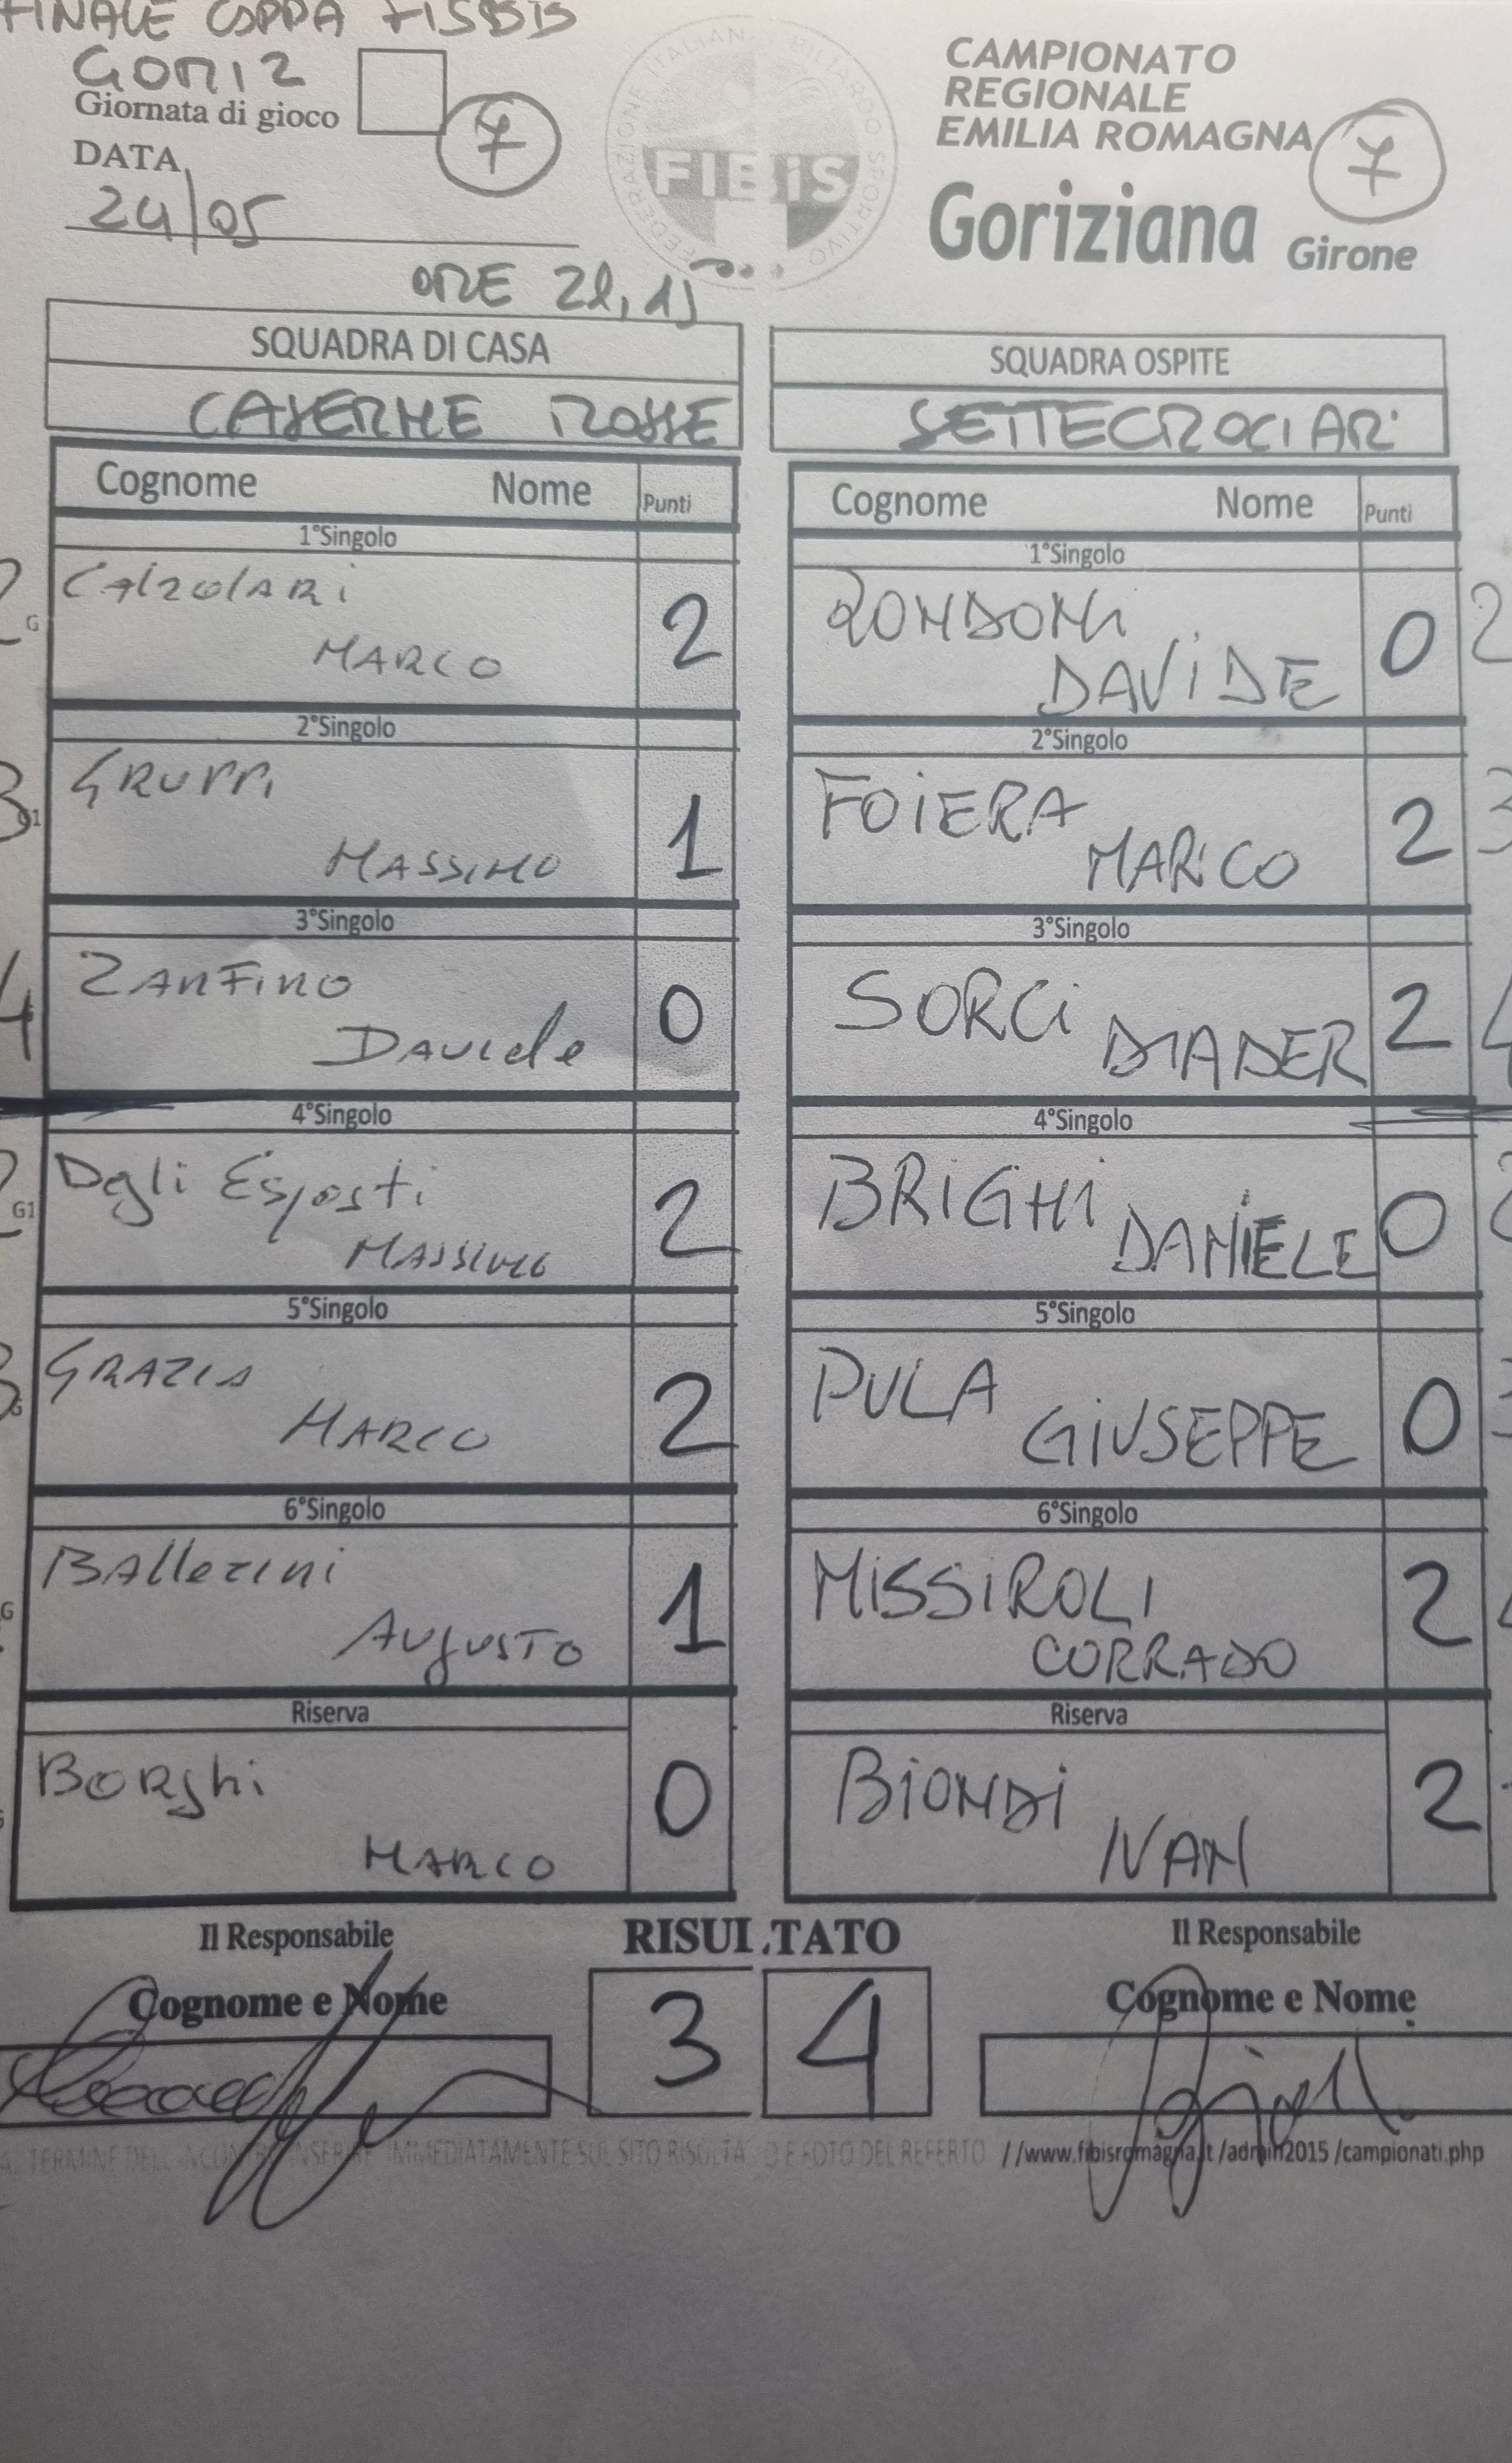 FINALE COPPA FISBB
GORIZ
Giornata di gioco
7
DATA
24/05
ORE 21,15
FEDERAZIONE ITALIANA BILIARDO SPORTIVO
FIBiS
CAMPIONATO
REGIONALE
EMILIA ROMAGNA
7
Goriziana Girone
SQUADRA DI CASA
CASERME ROSSE
Cognome Nome Punti
1°Singolo
CAlzolARi
MARCO 2
2°Singolo
GRUPPI
MASSIMO 1
3°Singolo
ZANFINO
DAVIDE 0
4°Singolo
Degli Esposti
MASSIMO 2
5°Singolo
GRAZIA
MARCO 2
6°Singolo
BAllerini
AUgUSTO 1
Riserva
BORghi
MARCO 0
SQUADRA OSPITE
SETTECROCIARI
Cognome Nome Punti
1°Singolo
RONDONi
DAViDE 0
2°Singolo
FOiERA
MARCO 2
3°Singolo
SORCi
DIADER 2
4°Singolo
BRiGHi
DANiELE 0
5°Singolo
PULA
GiUSEPPE 0
6°Singolo
MiSSiROLI
CORRADO 2
Riserva
BiONDi
IVAN 2
Il Responsabile
Cognome e Nome
RISULTATO
3 4
Il Responsabile
Cognome e Nome
AL TERMINE DELL'INCONTRO INSERIRE IMMEDIATAMENTE SUL SITO RISULTATO E FOTO DEL REFERTO //www.fibisromagna.it/admin2015/campionati.php